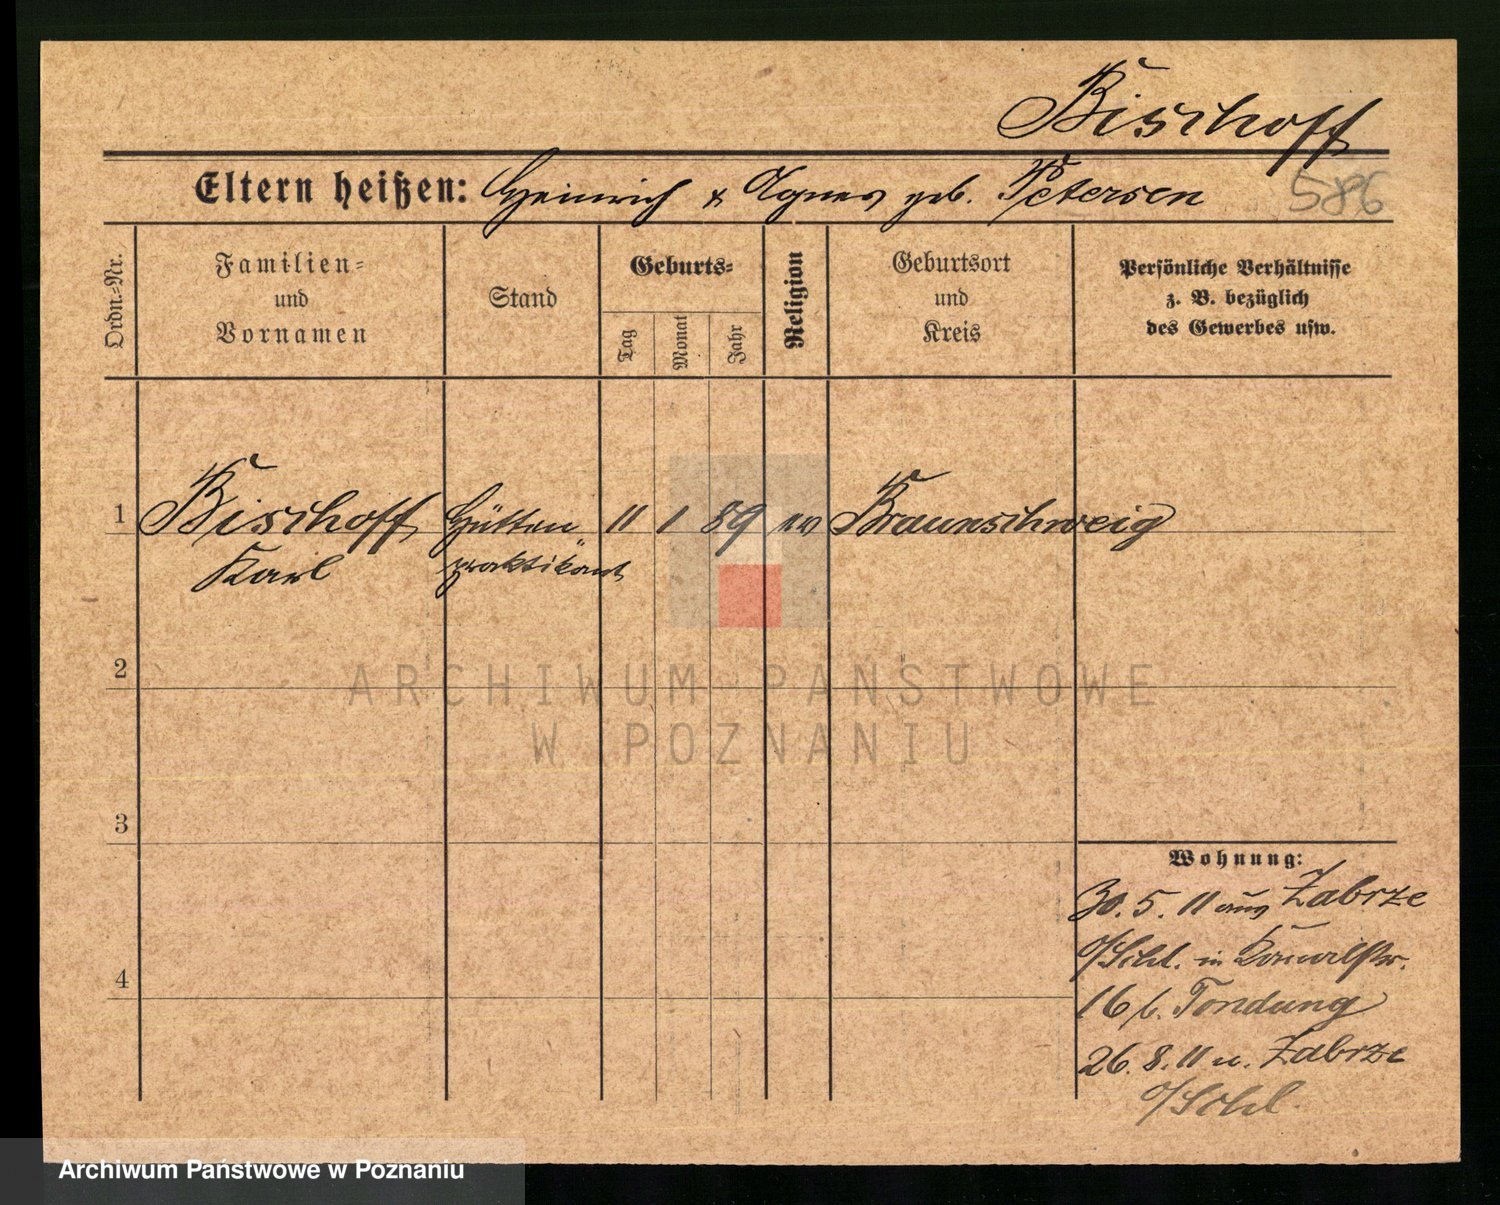 Bischoff
Eltern heißen: Heinrich & Agnes geb. Petersen 586
Ordn.-Nr.
Familien-
und
Vornamen
Stand
Geburts-
Tag
Monat
Jahr
Religion
Geburtsort
und
Kreis
Persönliche Verhältnisse
z. B. bezüglich
des Gewerbes usw.
1 Bischoff Hütten- 11 1 89 ev Braunschweig
Karl praktikant
2
3
4
Wohnung:
30.5.11 aus Zabrze
O/Schl. in
16 b. Tondung
26.8.11 n. Zabrze
O/Schl.
ARCHIWUM PAŃSTWOWE
W POZNANIU
Archiwum Państwowe w Poznaniu